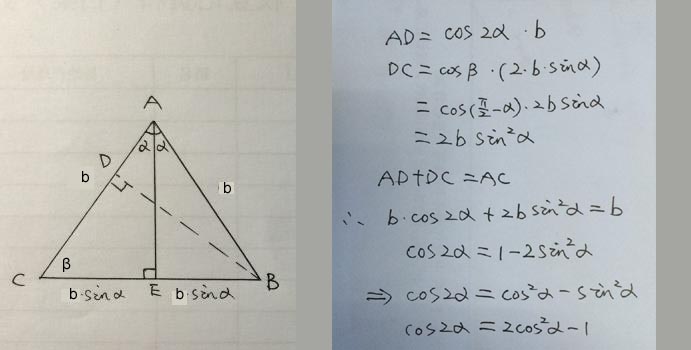 A
α α
D
b
b
C
β
E
B
b·sinα
b·sinα
AD = cos2α · b
DC = cosβ · (2·b·sinα)
= cos(π/2 - α)·2b sinα
= 2b sin²α
AD+DC = AC
∴ b·cos2α + 2b sin²α = b
cos2α = 1 - 2sin²α
⇒ cos2α = cos²α - sin²α
cos2α = 2cos²α - 1